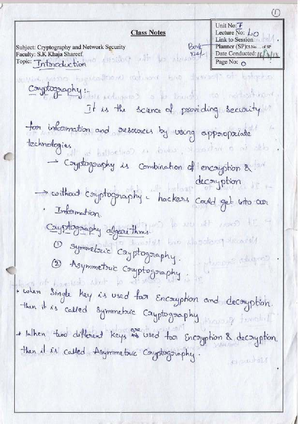 1
Class Notes
Unit No: I
Lecture No: L0
Link to Session
Planner (SP):
Date Conducted:
Page No: 0
Subject: Cryptography and Network Security
Faculty: S.K Khaja Shareef
Topic: Introduction
Cryptography:-
It is the science of providing security
for information and resources by using appropriate
technologies
→ Cryptography is combination of encryption &
decryption
→ without Cryptography, hackers could get into our
Information.
Cryptography algorithms
(1) Symmetric Cryptography.
(2) Asymmetric Cryptography.
• When Single key is used for Encryption and decryption
then it is called Symmetric Cryptography
• When two different keys are used for Encryption & decryption
then it is called Asymmetric Cryptography.